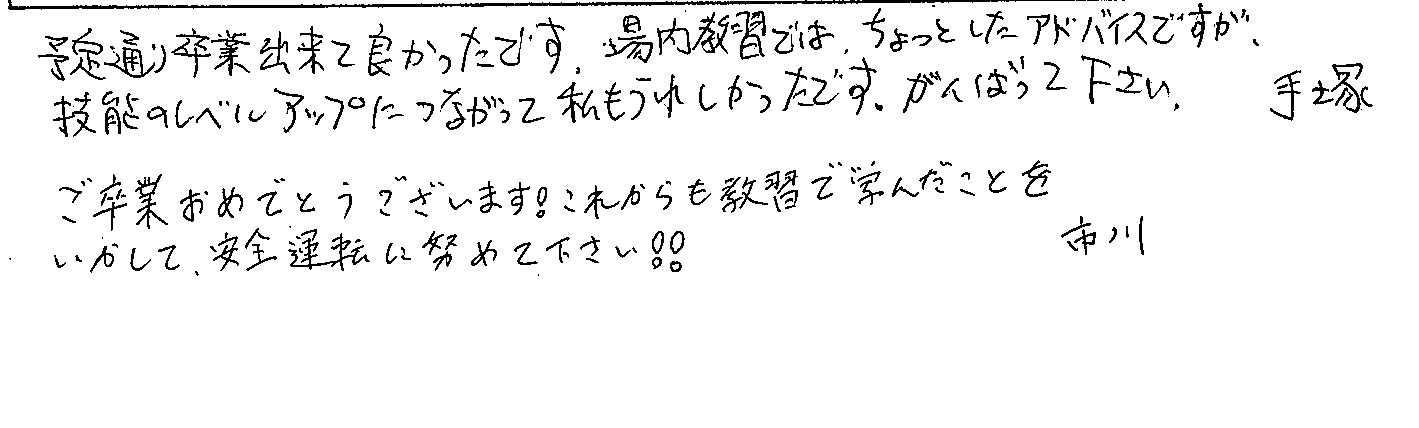 予定通り卒業出来て良かったです。場内教習では、ちょっとしたアドバイスですが、
技能のレベルアップにつながって私もうれしかったです。がんばって下さい。 手塚
ご卒業おめでとうございます!これからも教習で学んだことを
いかして、安全運転に努めて下さい!! 市川